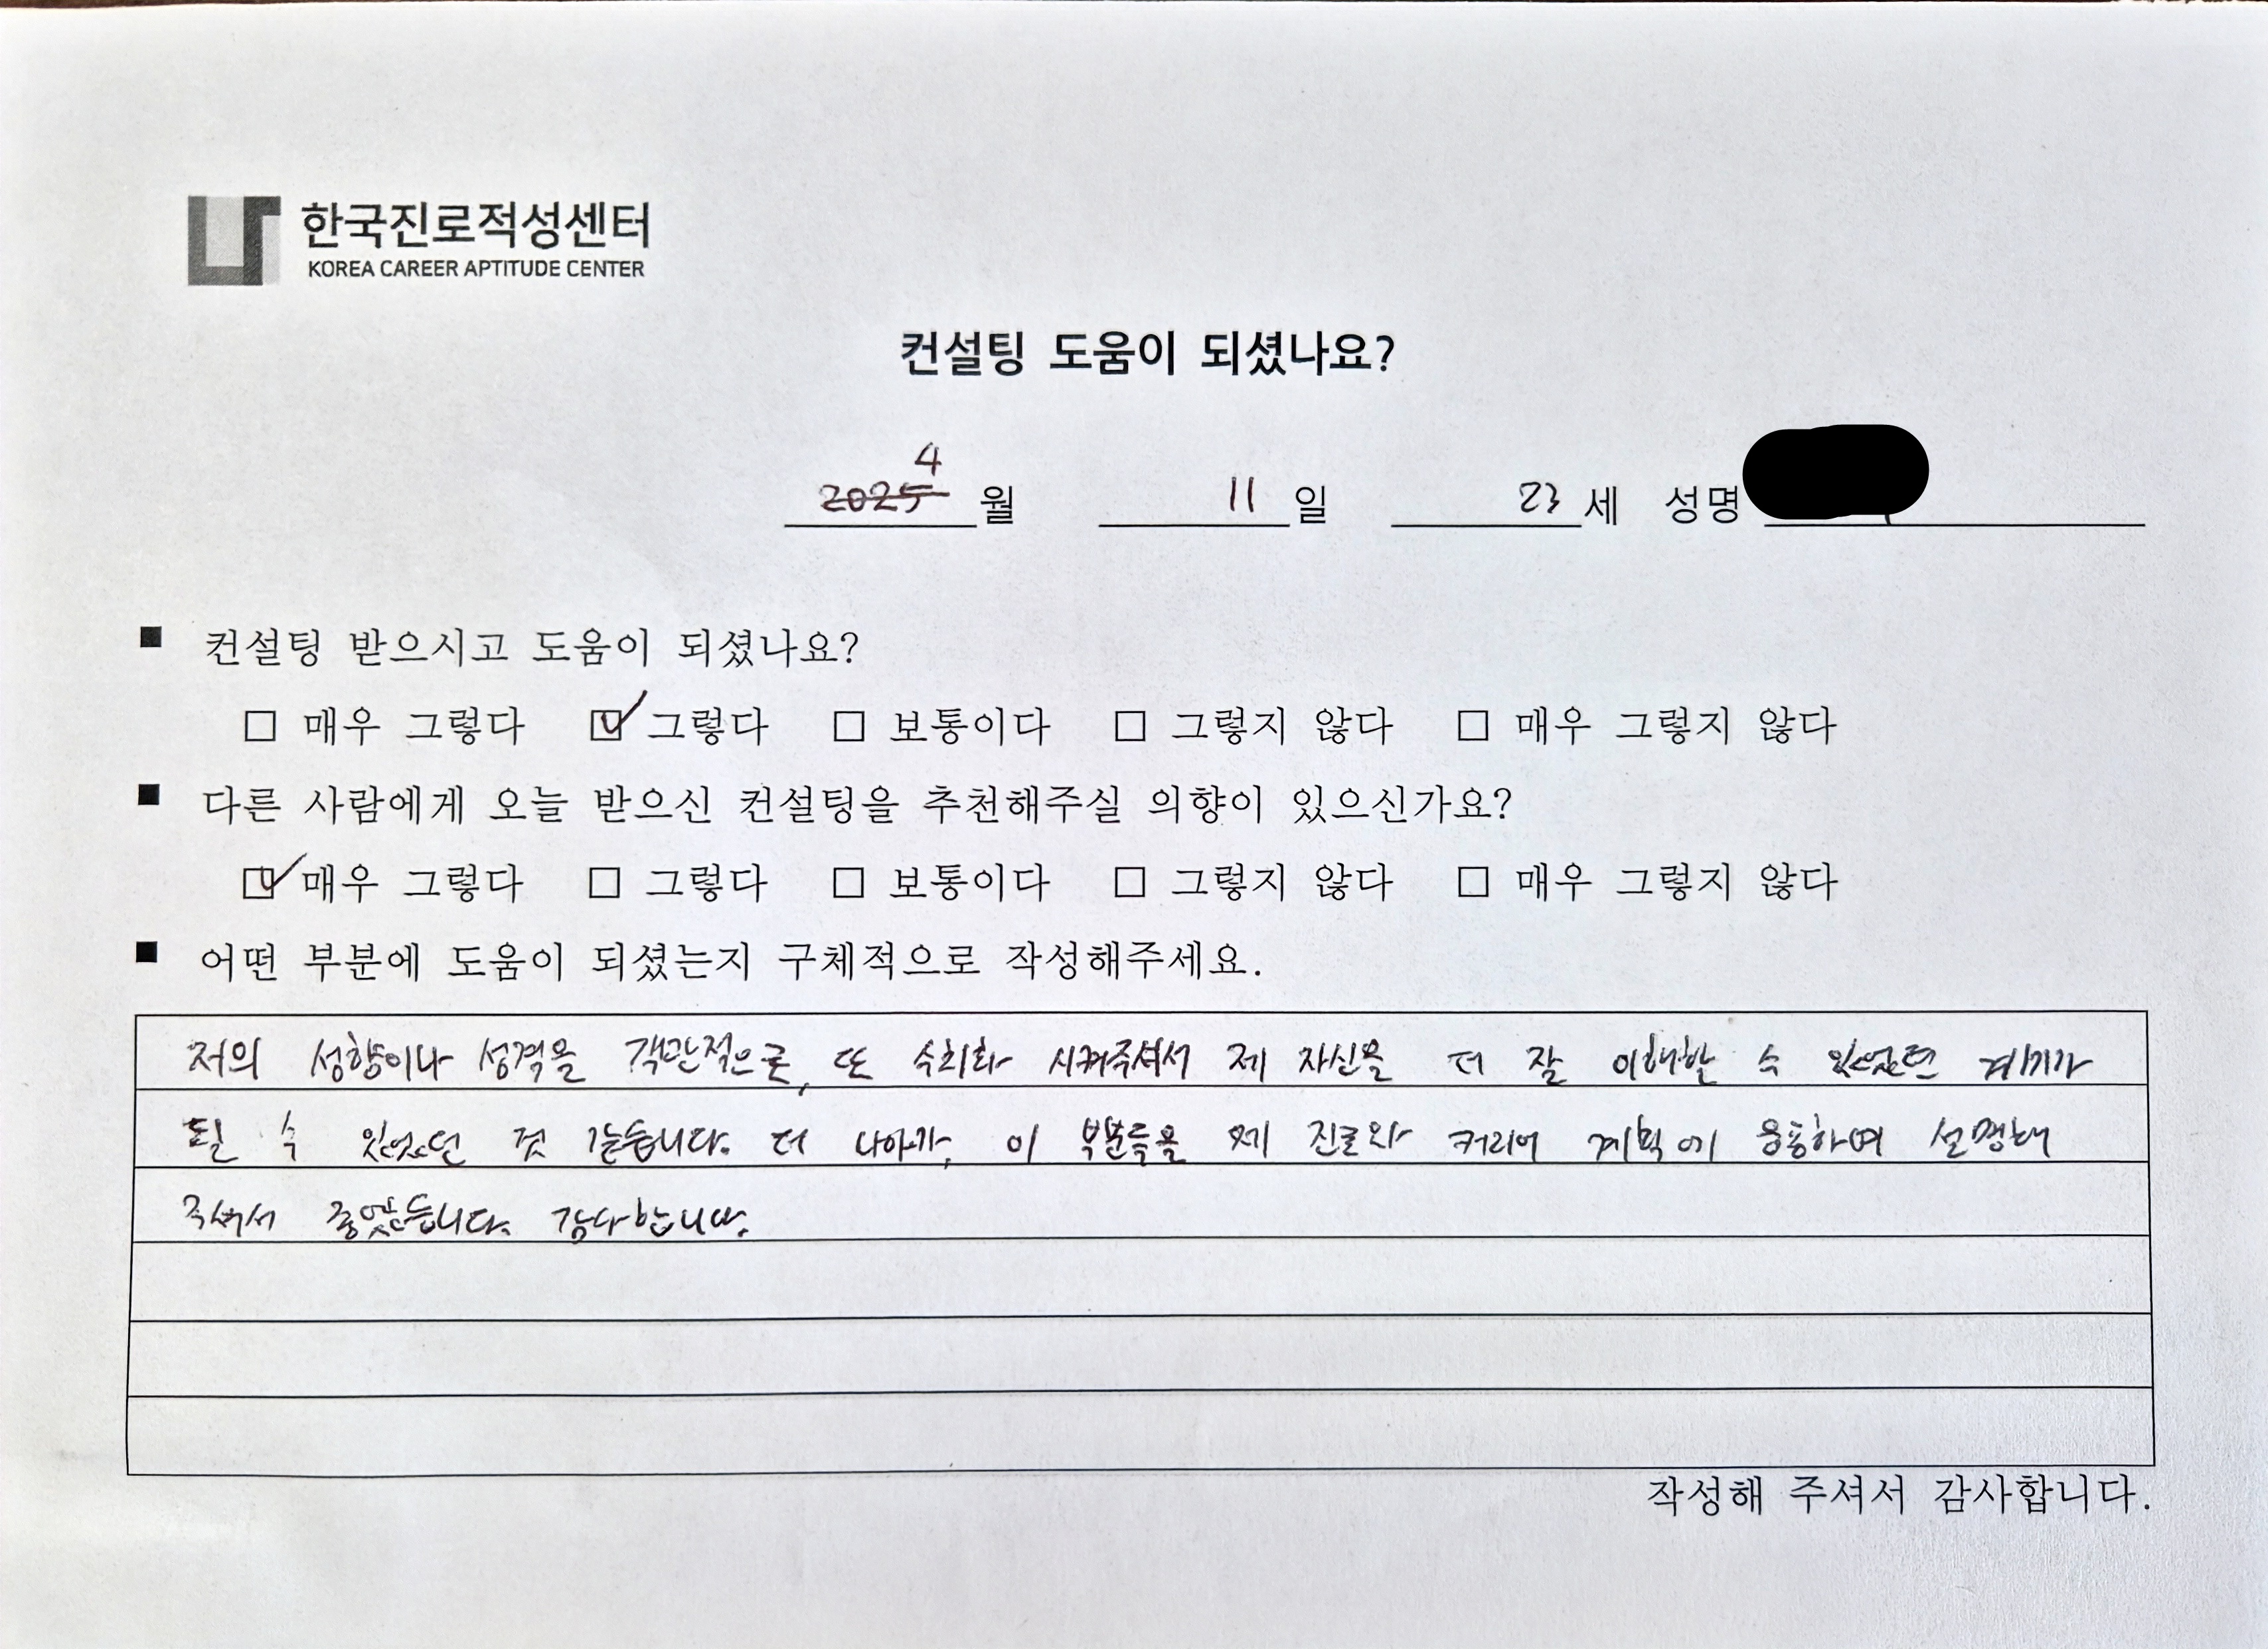 한국진로적성센터
KOREA CAREER APTITUDE CENTER
컨설팅 도움이 되셨나요?
4
2025 월 11 일 23 세 성명
■ 컨설팅 받으시고 도움이 되셨나요?
□ 매우 그렇다 ☑ 그렇다 □ 보통이다 □ 그렇지 않다 □ 매우 그렇지 않다
■ 다른 사람에게 오늘 받으신 컨설팅을 추천해주실 의향이 있으신가요?
☑ 매우 그렇다 □ 그렇다 □ 보통이다 □ 그렇지 않다 □ 매우 그렇지 않다
■ 어떤 부분에 도움이 되셨는지 구체적으로 작성해주세요.
저의 성향이나 성격을 객관적으로, 또 수치화 시켜주셔서 제 자신을 더 잘 이해할 수 있었던 계기가
될 수 있었던 것 같습니다. 더 나아가, 이 부분들을 제 진로와 커리어 계획에 응용하여 설명해
주셔서 좋았습니다. 감사합니다.
작성해 주셔서 감사합니다.